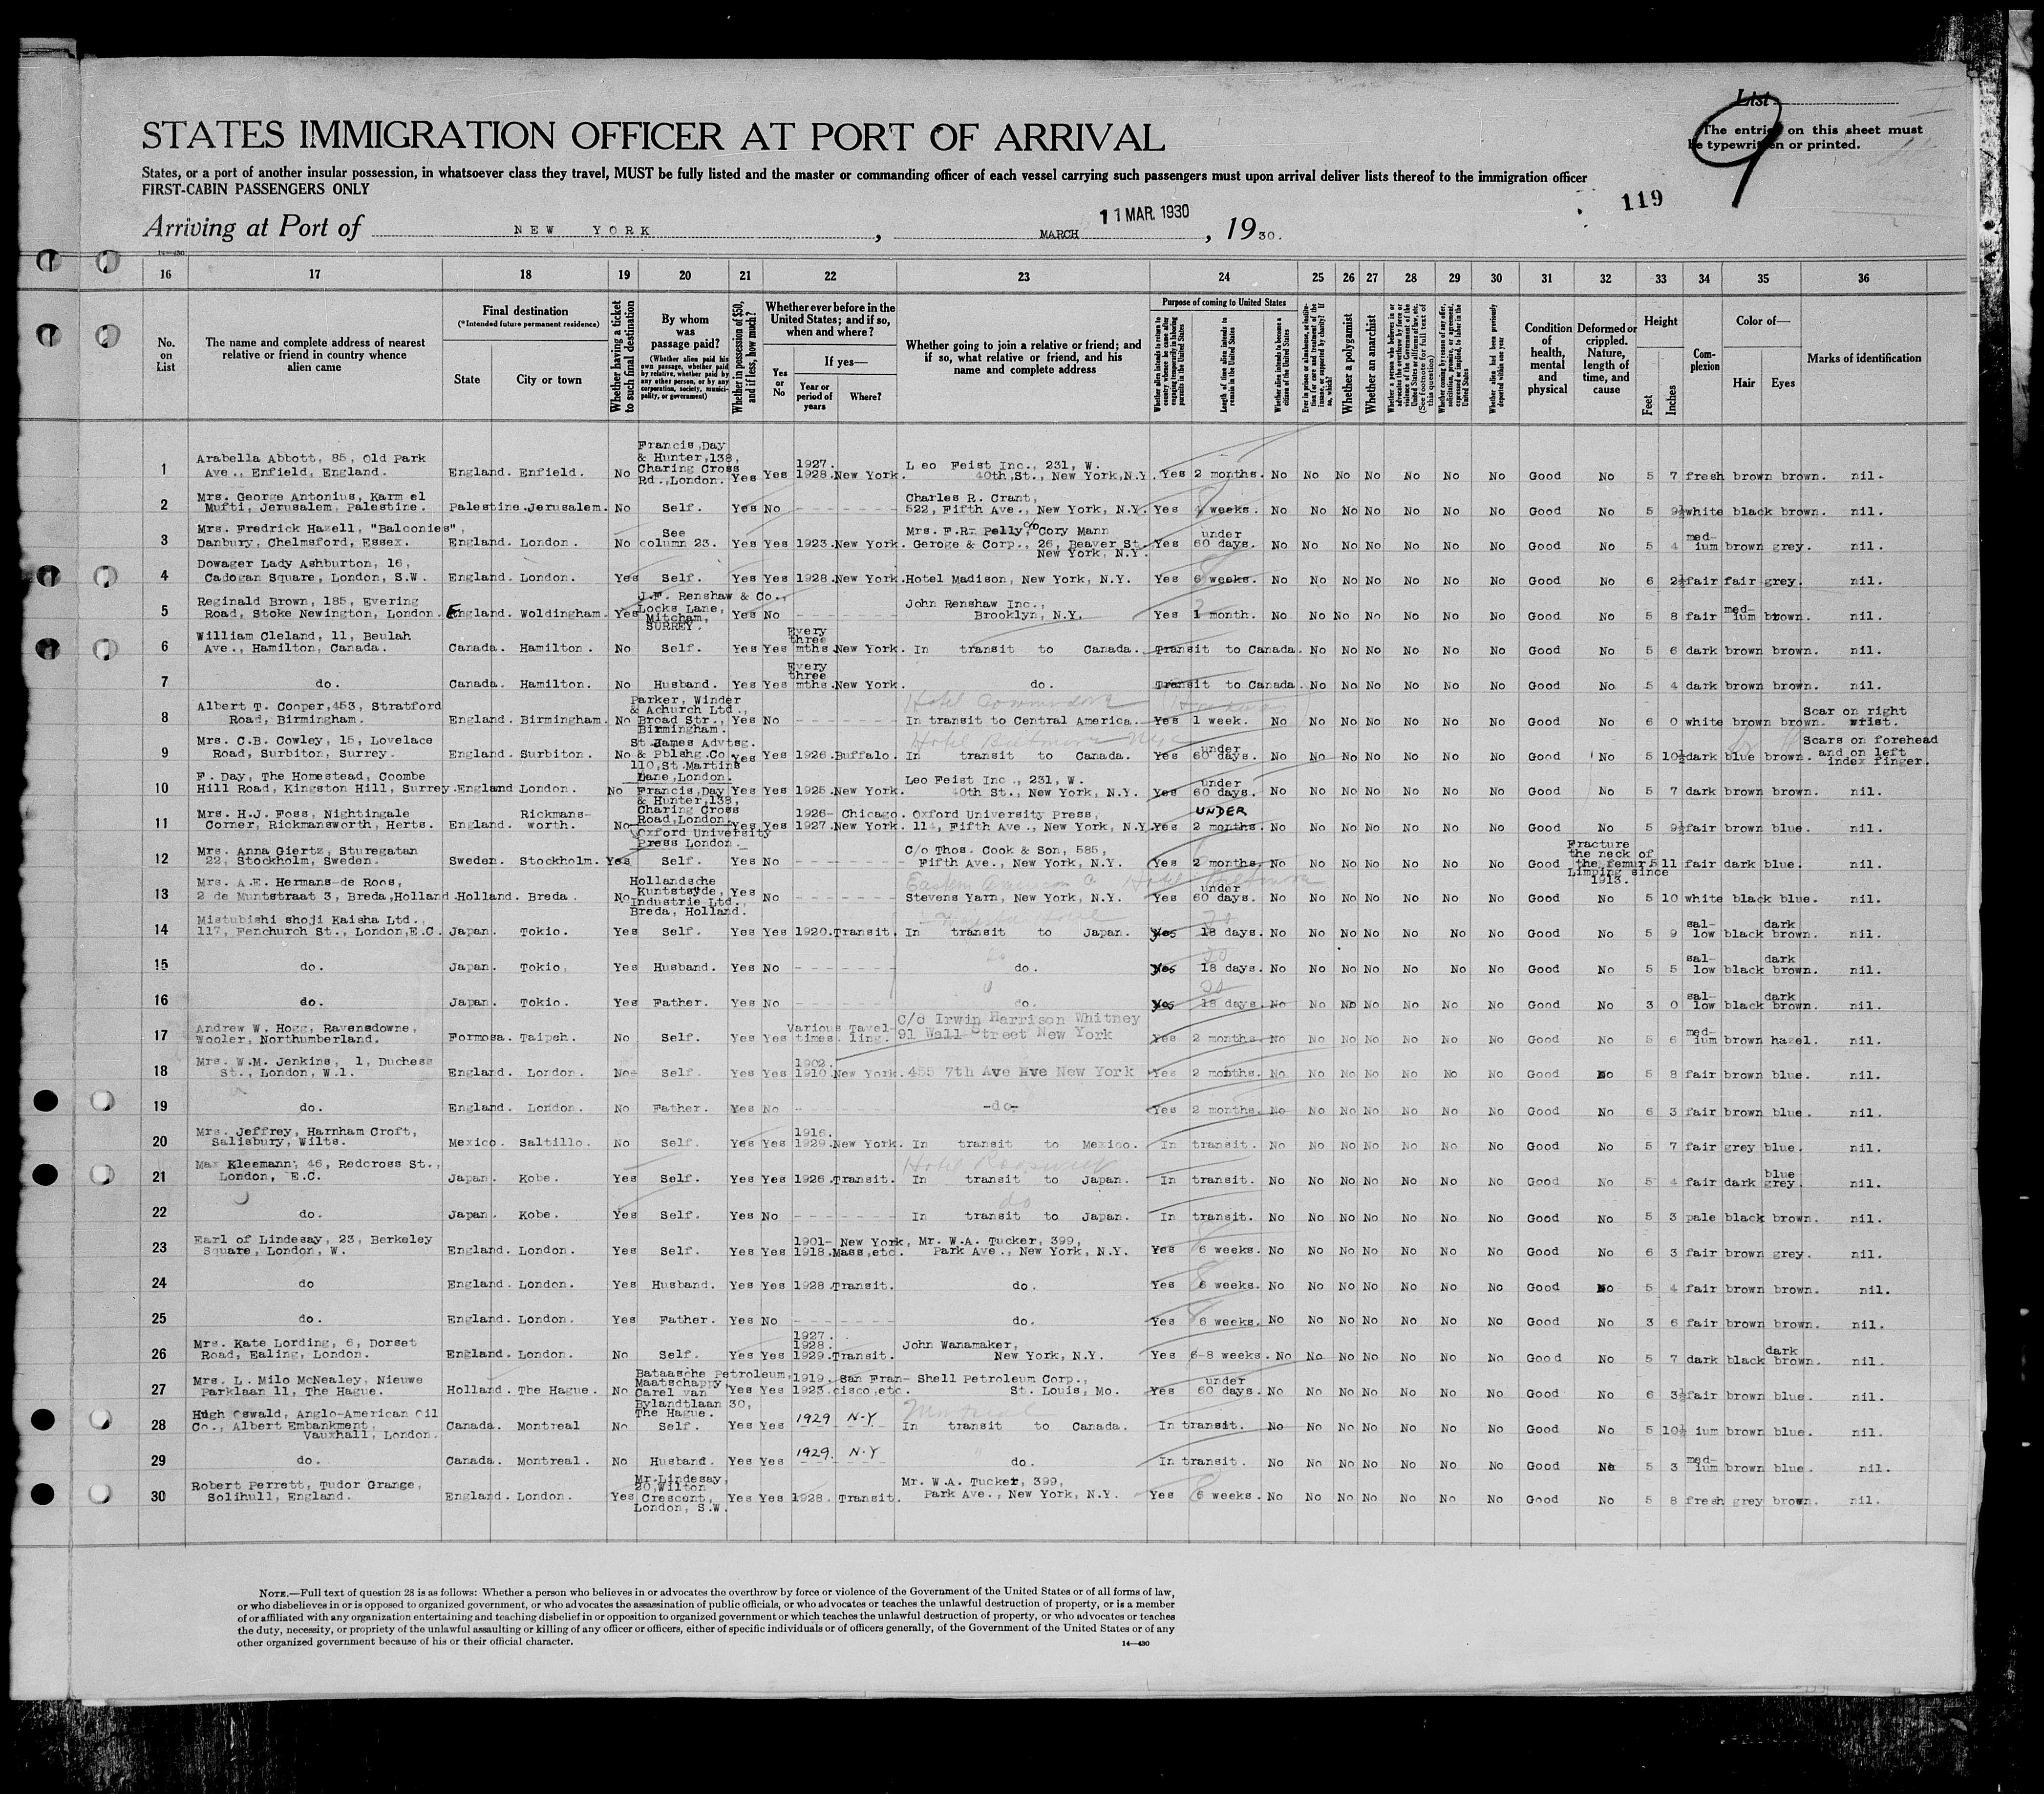 List
The entries on this sheet must
be typewritten or printed.
9
STATES IMMIGRATION OFFICER AT PORT OF ARRIVAL
States, or a port of another insular possession, in whatsoever class they travel, MUST be fully listed and the master or commanding officer of each vessel carrying such passengers must upon arrival deliver lists thereof to the immigration officer
FIRST-CABIN PASSENGERS ONLY
119
11 MAR. 1930
Arriving at Port of NEW YORK, MARCH, 1930.
14—430
16 17 18 19 20 21 22 23 24 25 26 27 28 29 30 31 32 33 34 35 36
No. on List
The name and complete address of nearest relative or friend in country whence alien came
Final destination
(*Intended future permanent residence)
State City or town
Whether having a ticket to such final destination
By whom was passage paid?
(Whether alien paid his own passage, whether paid by relative, whether paid by any other person, or by any corporation, society, municipality, or government)
Whether in possession of $50, and if less, how much?
Whether ever before in the United States; and if so, when and where?
Yes or No
If yes—
Year or period of years Where?
Whether going to join a relative or friend; and if so, what relative or friend, and his name and complete address
Purpose of coming to United States
Whether alien intends to return to country whence he came after engaging temporarily in laboring pursuits in the United States
Length of time alien intends to remain in the United States
Whether alien intends to become a citizen of the United States
Whether a polygamist
Whether an anarchist
Whether alien had been previously deported within one year
Condition of health, mental and physical
Deformed or crippled. Nature, length of time, and cause
Height
Feet Inches
Complexion
Color of—
Hair Eyes
Marks of identification
1 Arabella Abbott, 85, Old Park Ave., Enfield, England. England. Enfield. No Francis, Day & Hunter, 138, Charing Cross Rd., London. Yes Yes 1927. 1928. New York. Leo Feist Inc., 231, W. 40th, St., New York, N.Y. Yes 2 months. No No No No No No No Good No 5 7 fresh brown brown. nil.
2 Mrs. George Antonius, Karm el Mufti, Jerusalem, Palestine. Palestine. Jerusalem. No Self. Yes No - - - - Charles R. Crant, 522, Fifth Ave., New York, N.Y. Yes weeks. No No No No No No No Good No 5 9½ white black brown. nil.
3 Mrs. Fredrick Hazell, "Balconies", Danbury, Chelmsford, Essex. England. London. No See column 23. Yes Yes 1923. New York. Mrs. F.R. Pelly, c/o Cory Mann Geroge & Corp., 26, Beaver St. New York, N.Y. Yes under 60 days. No No No No No No No Good No 5 4 med-ium brown grey. nil.
4 Dowager Lady Ashburton, 16, Cadogan Square, London, S.W. England. London. Yes Self. Yes Yes 1928. New York. Hotel Madison, New York, N.Y. Yes 6 weeks. No No No No No No No Good No 6 2½ fair fair grey. nil.
5 Reginald Brown, 185, Evering Road, Stoke Newington, London. England. Woldingham. Yes J.F. Renshaw & Co., Locks Lane, Mitcham, SURREY. Yes No - - - - John Renshaw Inc., Brooklyn, N.Y. Yes 1 month. No No No No No No No Good No 5 8 fair med-ium brown. nil.
6 William Cleland, 11, Beulah Ave., Hamilton, Canada. Canada. Hamilton. No Self. Yes Yes Every three mths. New York. In transit to Canada. Transit to Canada. No No No No No No Good No 5 6 dark brown brown. nil.
7 do. Canada. Hamilton. No Husband. Yes Yes Every three mths. New York. do. Transit to Canada. No No No No No No Good No 5 4 dark brown brown. nil.
8 Albert T. Cooper, 453, Stratford Road, Birmingham. England. Birmingham. No Parker, Winder & Achurch Ltd., Broad Str., Birmingham. Yes No - - - - Hotel Commodore In transit to Central America. Yes 1 week. No No No No No No No Good No 6 0 white brown brown. Scar on right wrist.
9 Mrs. C.B. Cowley, 15, Lovelace Road, Surbiton, Surrey. England. Surbiton. No St James Advtsg. & Pblshg. Co 110, St Martins Lane, London. Yes Yes 1926. Buffalo. Hotel Biltmore In transit to Canada. Yes under 60 days. No No No No No No No Good No 5 10½ dark blue brown. Scars on forehead and on left index finger.
10 F. Day, The Homestead, Coombe Hill Road, Kingston Hill, Surrey. England London. No Francis, Day & Hunter, 138, Charing Cross Road, London. Yes Yes 1925. New York. Leo Feist Inc., 231, W. 40th St., New York, N.Y. Yes under 60 days. No No No No No No No Good No 5 7 dark brown brown. nil.
11 Mrs. H.J. Foss, Nightingale Corner, Rickmansworth, Herts. England. Rickmans-worth. No Oxford University Press London. Yes Yes 1926- 1927. Chicago. New York. Oxford University Press, 114, Fifth Ave., New York, N.Y. Yes UNDER 2 months. No No No No No No No Good No 5 9½ fair brown blue. nil.
12 Mrs. Anna Giertz, Sturegatan 22, Stockholm, Sweden. Sweden. Stockholm. Yes Self. Yes No - - - - C/o Thos. Cook & Son, 585, Fifth Ave., New York, N.Y. Yes 2 months. No No No No No No No Good Fracture the neck of the femur Limping since 1913. 5 11 fair dark blue. nil.
13 Mrs. A.E. Hermans-de Roos, 2 de Muntstraat 3, Breda, Holland. Holland. Breda. No Hollandsche Kuntstsyde, Industrie Ltd., Breda, Holland. Yes No - - - - Stevens Yarn, New York, N.Y. Yes under 60 days. No No No No No No No Good No 5 10 white black blue. nil.
14 Mistubishi shoji Kaisha Ltd., 117, Fenchurch St., London, E.C. Japan. Tokio. Yes Self. Yes Yes 1920. Transit. In transit to Japan. Yes 20 18 days. No No No No No No No Good No 5 9 sal-low black dark brown. nil.
15 do. Japan. Tokio. Yes Husband. Yes No - - - - do. Yes 20 18 days. No No No No No No No Good No 5 5 sal-low black dark brown. nil.
16 do. Japan. Tokio. Yes Father. Yes No - - - - do. Yes 20 18 days. No No No No No No No Good No 3 0 sal-low black dark brown. nil.
17 Andrew W. Hogg, Ravensdowne, Wooler, Northumberland. Formosa. Taipeh. No Self. Yes Yes Various times. Tavel-ling. C/o Irwin Harrison Whitney 91 Wall Street New York Yes 2 months. No No No No No No No Good No 5 6 med-ium brown hazel. nil.
18 Mrs. W.M. Jenkins, 1, Duchess St., London, W.1. England. London. No Self. Yes Yes 1902. 1910. New York. 455 7th Ave New York Yes 2 months. No No No No No No No Good No 5 8 fair brown blue. nil.
19 do. England. London. No Father. Yes No - - - - -do- Yes 2 months. No No No No No No No Good No 6 3 fair brown blue. nil.
20 Mrs. Jeffrey, Harnham Croft, Salisbury, Wilts. Mexico. Saltillo. No Self. Yes Yes 1916. 1929. New York. In transit to Mexico. In transit. No No No No No No No Good No 5 7 fair grey blue. nil.
21 Max Kleemann, 46, Redcross St., London, E.C. Japan. Kobe. Yes Self. Yes Yes 1926. Transit. Hotel Roosevelt In transit to Japan. In transit. No No No No No No No Good No 5 4 fair dark blue grey. nil.
22 do. Japan. Kobe. Yes Self. Yes No - - - - do In transit to Japan. In transit. No No No No No No No Good No 5 3 pale black brown. nil.
23 Earl of Lindesay, 23, Berkeley Square, London, W. England. London. Yes Self. Yes Yes 1901- 1918. New York, Mass, etc. Mr. W.A. Tucker, 399, Park Ave., New York, N.Y. Yes 6 weeks. No No No No No No No Good No 6 3 fair brown grey. nil.
24 do England. London. Yes Husband. Yes Yes 1928. Transit. do. Yes 6 weeks. No No No No No No No Good No 5 4 fair brown brown. nil.
25 do. England. London. Yes Father. Yes No - - - - do. Yes 6 weeks. No No No No No No No Good No 3 6 fair brown brown. nil.
26 Mrs. Kate Lording, 6, Dorset Road, Ealing, London. England. London. No Self. Yes Yes 1927. 1928. 1929. Transit. John Wanamaker, New York, N.Y. Yes 6-8 weeks. No No No No No No No Good No 5 7 dark black dark brown. nil.
27 Mrs. L. Milo McNealey, Nieuwe Parklaan 11, The Hague. Holland. The Hague. No Bataasche Petroleum, Maatschappy, Carel van Bylandtlaan 30, The Hague. Yes Yes 1919. 1923. San Fran-cisco, etc. Shell Petroleum Corp., St. Louis, Mo. Yes under 60 days. No No No No No No No Good No 6 3½ fair brown blue. nil.
28 Hugh Oswald, Anglo-American Oil Co., Albert Embankment, Vauxhall, London. Canada. Montreal No Self. Yes Yes 1929 N-Y Montreal In transit to Canada. In transit. No No No No No No No Good No 5 10½ ium brown blue. nil.
29 do. Canada. Montreal. No Husband. Yes Yes 1929. N-Y do. In transit. No No No No No No No Good No 5 3 med-ium brown blue. nil.
30 Robert Perrett, Tudor Grange, Solihull, England. England. London. Yes Mr. Lindesay, 20, Wilton Crescent, London, S.W. Yes Yes 1928. Transit. Mr. W.A. Tucker, 399, Park Ave., New York, N.Y. Yes 6 weeks. No No No No No No No Good No 5 8 fresh grey brown. nil.
NOTE.—Full text of question 28 is as follows: Whether a person who believes in or advocates the overthrow by force or violence of the Government of the United States or of all forms of law,
or who disbelieves in or is opposed to organized government, or who advocates the assassination of public officials, or who advocates or teaches the unlawful destruction of property, or is a member
of or affiliated with any organization entertaining and teaching disbelief in or opposition to organized government or which teaches the unlawful destruction of property, or who advocates or teaches
the duty, necessity, or propriety of the unlawful assaulting or killing of any officer or officers, either of specific individuals or of officers generally, of the Government of the United States or of any
other organized government because of his or their official character.
14—430